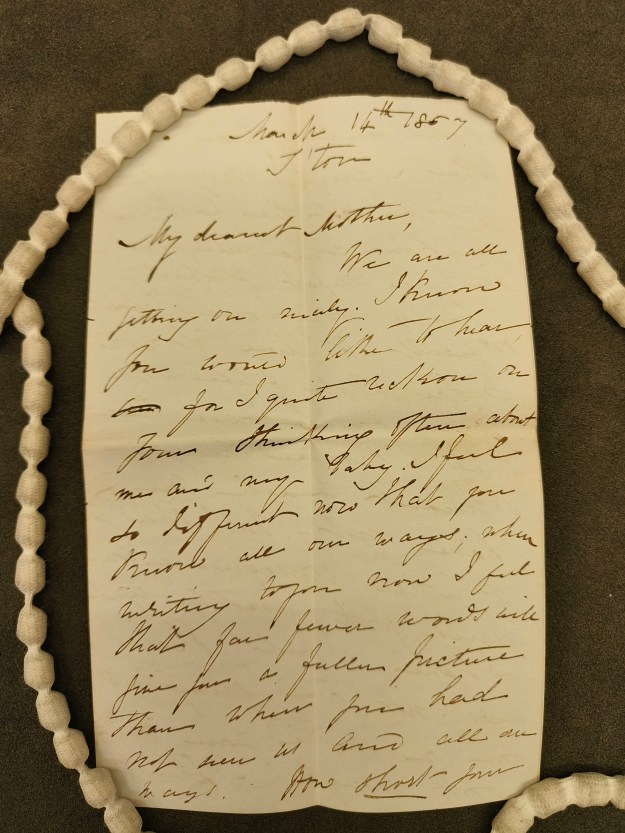 March 14th 1867
I'ton
My dearest Mother,
We are all
getting on nicely. I know
you would like to hear,
for I quite reckon on
your thinking often about
me and my baby. I feel
so different now that you
know all our ways; when
writing to you now I feel
that far fewer words will
give you a fuller picture
than when you had
not seen us and all our
ways. How short your